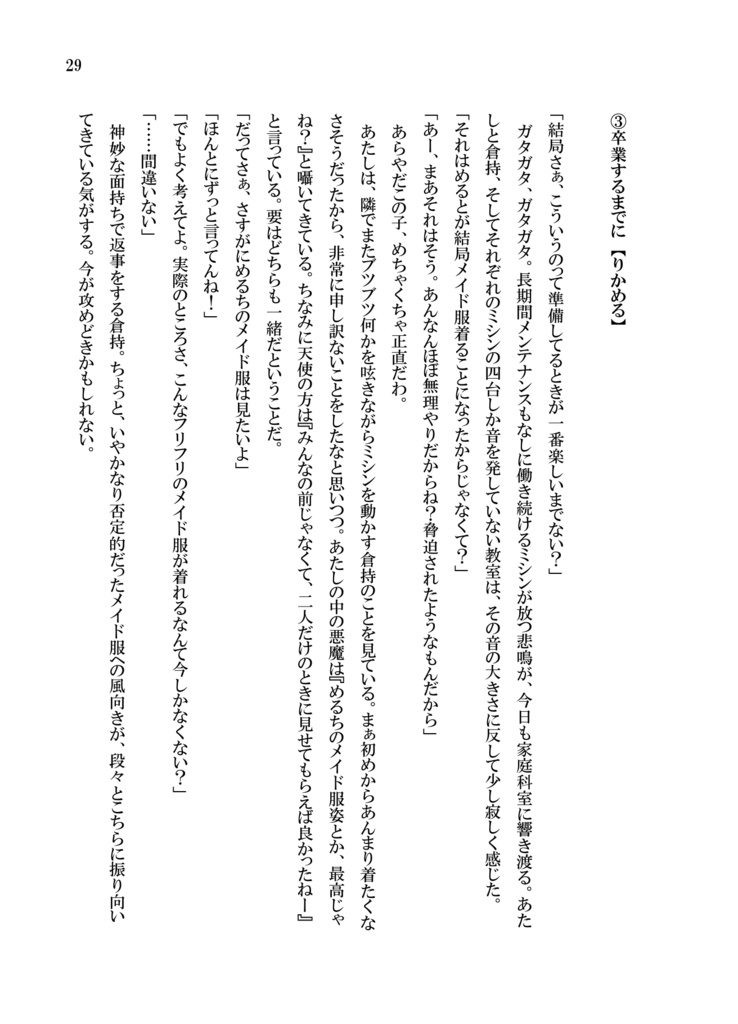 29
③卒業するまでに【りかめる】
「結局さぁ、こういうのって準備してるときが一番楽しいまでない？」
ガタガタ、ガタガタ。長期間メンテナンスもなしに働き続けるミシンが放つ悲鳴が、今日も家庭科室に響き渡る。あた
しと倉持、そしてそれぞれのミシンの四台しか音を発していない教室は、その音の大きさに反して少し寂しく感じた。
「それはめるとが結局メイド服着ることになったからじゃなくて？」
「あー、まあそれはそう。あんなんほぼ無理やりだからね？脅迫されたようなもんだから」
あらやだこの子、めちゃくちゃ正直だわ。
あたしは、隣でまたブツブツ何かを呟きながらミシンを動かす倉持のことを見ている。まぁ初めからあんまり着たくな
さそうだったから、非常に申し訳ないことをしたなと思いつつ。あたしの中の悪魔は『めるちのメイド服姿とか、最高じゃ
ね？』と囁いてきている。ちなみに天使の方は『みんなの前じゃなくて、二人だけのときに見せてもらえば良かったねー』
と言っている。要はどちらも一緒だということだ。
「だってさぁ、さすがにめるちのメイド服は見たいよ」
「ほんとにずっと言ってんね！」
「でもよく考えてよ。実際のところさ、こんなフリフリのメイド服が着れるなんて今しかなくない？」
「……間違いない」
神妙な面持ちで返事をする倉持。ちょっと、いやかなり否定的だったメイド服への風向きが、段々とこちらに振り向い
てきている気がする。今が攻めどきかもしれない。